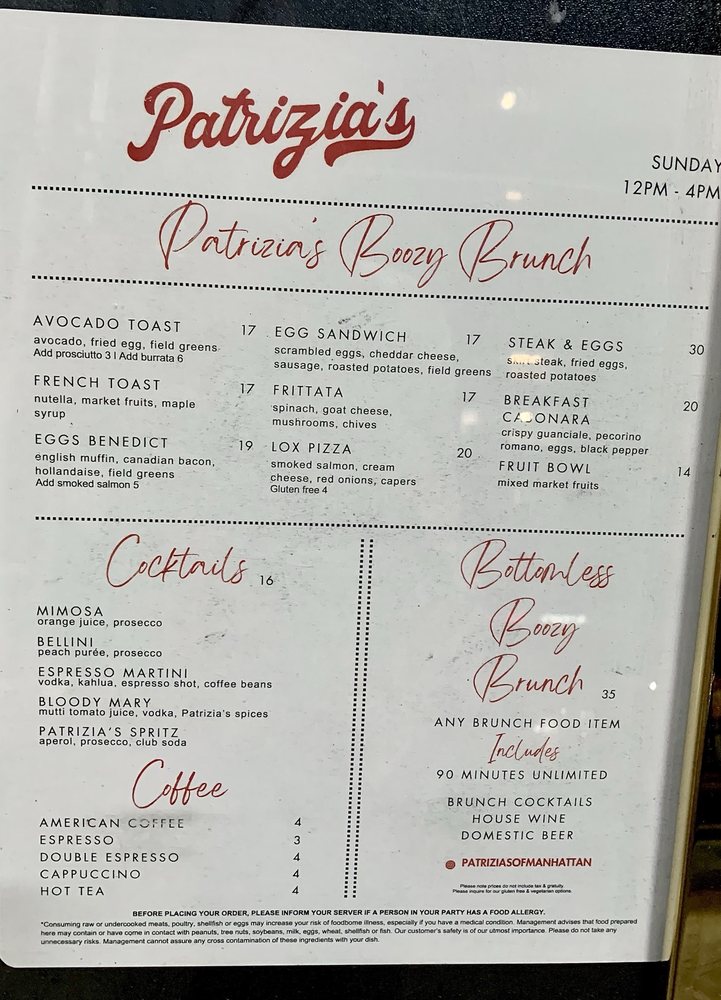 Patrizia's
SUNDAY
12PM - 4PM
Patrizia's Boozy Brunch
AVOCADO TOAST 17
avocado, fried egg, field greens
Add prosciutto 3 I Add burrata 6
FRENCH TOAST 17
nutella, market fruits, maple
syrup
EGGS BENEDICT 19
english muffin, canadian bacon,
hollandaise, field greens
Add smoked salmon 5
EGG SANDWICH 17
scrambled eggs, cheddar cheese,
sausage, roasted potatoes, field greens
FRITTATA 17
spinach, goat cheese,
mushrooms, chives
LOX PIZZA 20
smoked salmon, cream
cheese, red onions, capers
Gluten free 4
STEAK & EGGS 30
skirt steak, fried eggs,
roasted potatoes
BREAKFAST 20
CABONARA
crispy guanciale, pecorino
romano, eggs, black pepper
FRUIT BOWL 14
mixed market fruits
Cocktails 16
MIMOSA
orange juice, prosecco
BELLINI
peach purée, prosecco
ESPRESSO MARTINI
vodka, kahlua, espresso shot, coffee beans
BLOODY MARY
mutti tomato juice, vodka, Patrizia's spices
PATRIZIA'S SPRITZ
aperol, prosecco, club soda
Coffee
AMERICAN COFFEE 4
ESPRESSO 3
DOUBLE ESPRESSO 4
CAPPUCCINO 4
HOT TEA 4
Bottomless
Boozy
Brunch 35
ANY BRUNCH FOOD ITEM
Includes
90 MINUTES UNLIMITED
BRUNCH COCKTAILS
HOUSE WINE
DOMESTIC BEER
PATRIZIASOFMANHATTAN
Please note prices do not include tax & gratuity.
Please inquire for our gluten free & vegetarian options.
BEFORE PLACING YOUR ORDER, PLEASE INFORM YOUR SERVER IF A PERSON IN YOUR PARTY HAS A FOOD ALLERGY.
*Consuming raw or undercooked meats, poultry, shellfish or eggs may increase your risk of foodborne illness, especially if you have a medical condition. Management advises that food prepared
here may contain or have come in contact with peanuts, tree nuts, soybeans, milk, eggs, wheat, shellfish or fish. Our customer's safety is of our utmost importance. Please do not take any
unnecessary risks. Management cannot assure any cross contamination of these ingredients with your dish.